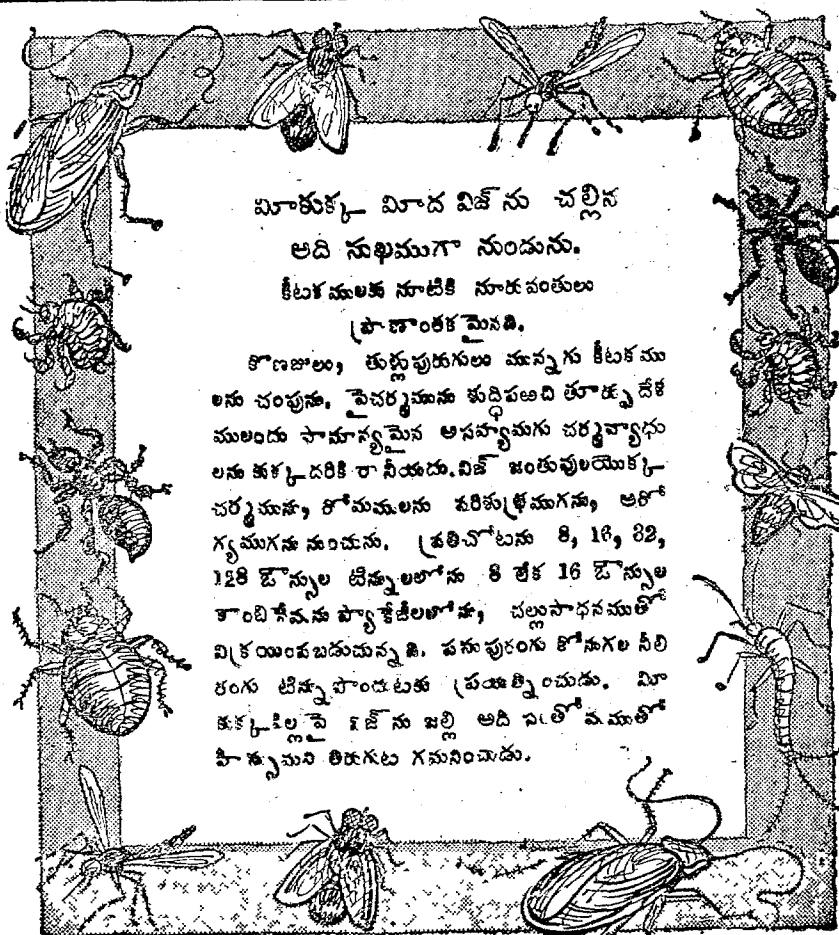 మీకుక్క మీద విజ్‌ను చల్లిన
అది సుఖముగా నుండును.
కీటకములకు నూటికి నూరువంతులు
ప్రాణాంతకమైనది.
కొణజులు, తుళ్లుపురుగులు మున్నగు కీటకము
లను చంపును. పైచర్మమును శుద్ధిపఱచి తూర్పు దేశ
ములందు సామాన్యమైన అసహ్యమగు చర్మవ్యాధు
లను కుక్క దరికి రానీయదు. విజ్ జంతువులయొక్క
చర్మమును, రోమములను పరిశుభ్రముగను, ఆరో
గ్యముగను నుంచును. ప్రతిచోటను 8, 16, 32,
128 ఔన్సుల టిన్నులలోను 8 లేక 16 ఔన్సుల
కాంబినేషను ప్యాకేజీలలోను, చల్లుసాధనముతో
విక్రయింపబడుచున్నది. పసుపురంగు కోనుగల నీలి
రంగు టిన్ను పొందుటకు ప్రయత్నించుడు. మీ
కుక్కపిల్లపై విజ్‌ను జల్లి అది సంతోషముతో
తిరుగుట గమనించుడు.